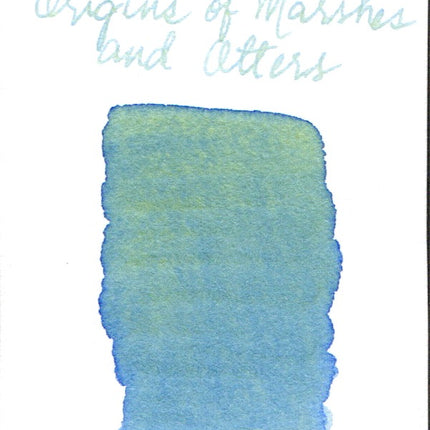 Origins of Marshes
and Otters